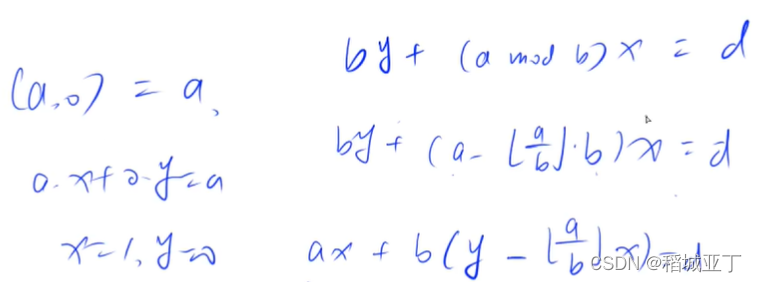 (a,0) = a,
a·x+0·y=a
x=1, y=0
by + (a mod b)x = d
by + (a - ⌊a/b⌋·b)x = d
ax + b(y - ⌊a/b⌋x)=d
CSDN @稻城亚丁